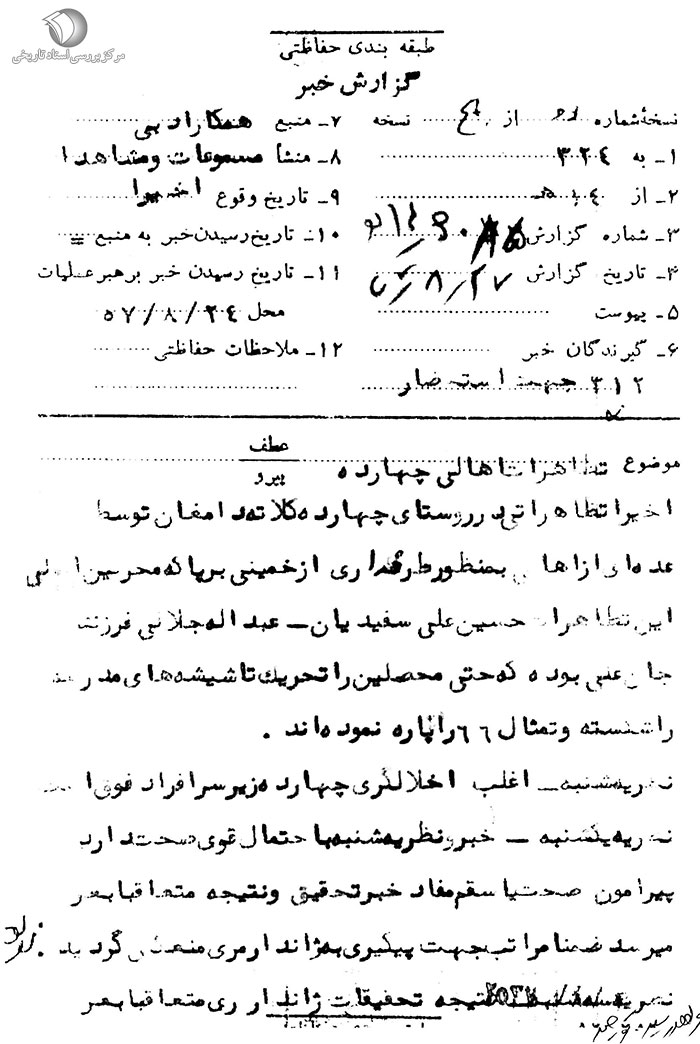 مرکز بررسی اسناد تاریخی
طبقه بندی حفاظتی
گزارش خبر
نسخهٔ شماره از نسخه
۱ـ به ۳۲٤
۲ـ از
۳ـ شماره گزارش
۴ـ تاریخ گزارش ۵۷/۸/۲۷
۵ـ پیوست
۶ـ گیرندگان خبر
۳۱۲ جهت استحضار
۷ـ منبع همکار
۸ـ منشأ مسموعات ومشاهدا
۹ـ تاریخ وقوع اخیرا
۱۰ـ تاریخ رسیدن خبر به منبع =
۱۱ـ تاریخ رسیدن خبر برهبر عملیات
محل ۵۷/۸/۲٤
۱۲ـ ملاحظات حفاظتی
موضوع تظاهرات اهالی چهارده
عطف
پیرو
اخیرا تظاهراتی در روستای چهارده کلاته دامغان توسط
عده ای از اهالی بمنظور طرفداری از خمینی برپا که محرکین اصلی
این تظاهرات حسین علی سفیدیان ـ عبداله جلالی فرزند
جانعلی بوده که حتی محصلین را تحریک تا شیشه های مدرسه
را شکسته و تمثال ٦٦ را پاره نموده اند .
نظریه شنبه ـ اغلب اخلالگری چهارده زیر سر افراد فوق است
نظریه یکشنبه ـ خبر و نظریه شنبه با احتمال قوی صحت دارد
پیرامون صحت یا سقم مفاد خبر تحقیق و نتیجه متعاقبا بعرض
میرسد ضمنا مراتب جهت پیگیری به ژاندارمری منعکس گردید .
نظریه سه شنبه نتیجه تحقیقات ژاندارمری متعاقبا بعرض